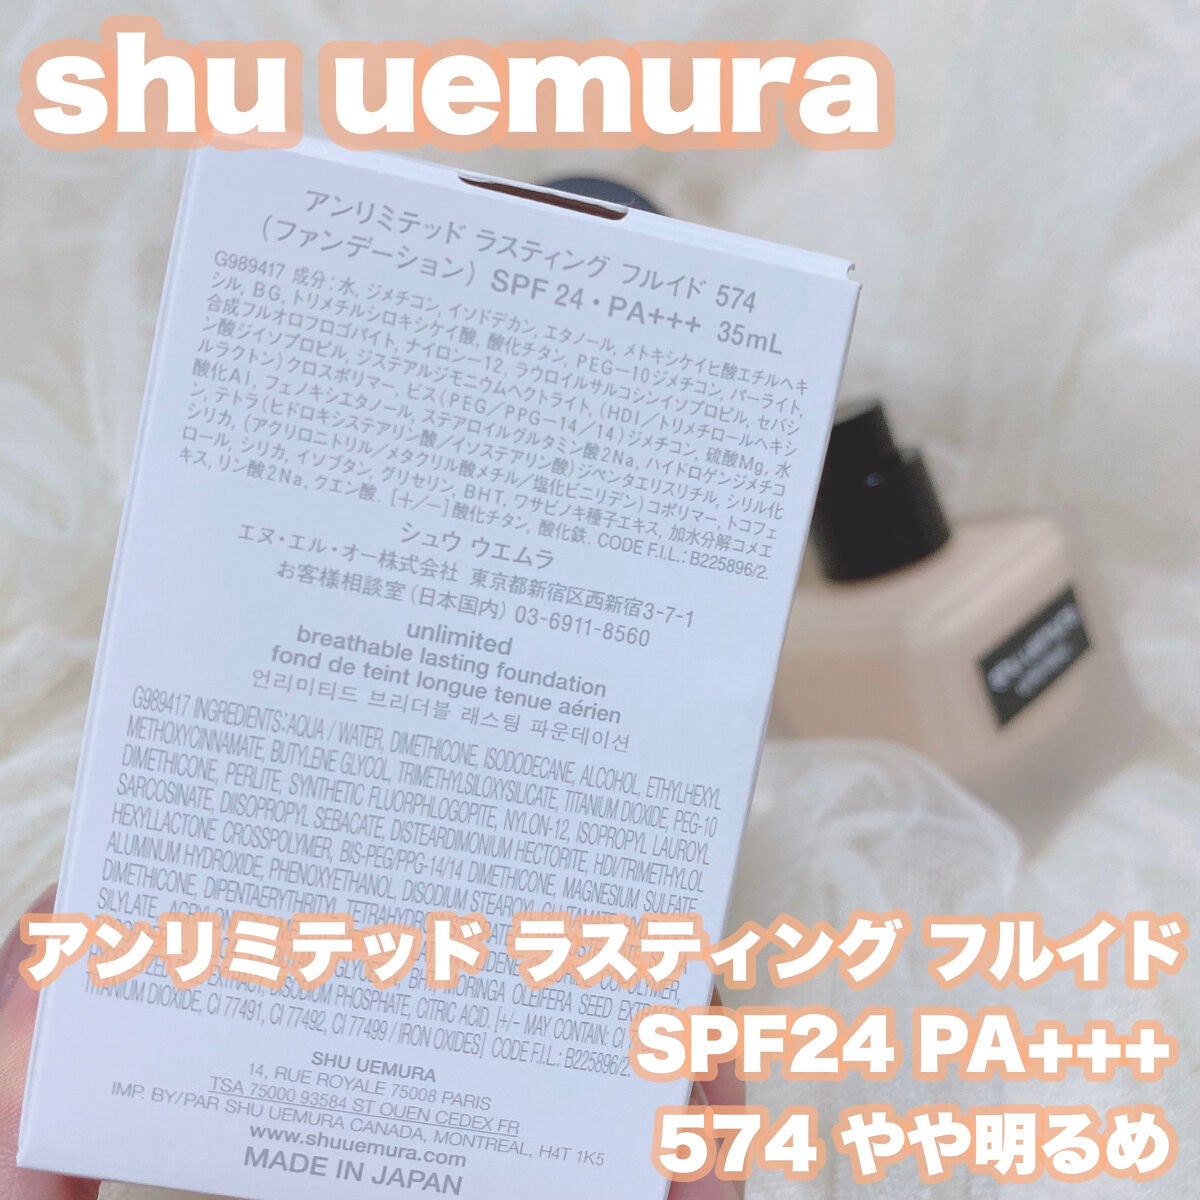 shu uemura
アンリミテッド ラスティング フルイド 574
(ファンデーション) SPF 24・PA+++ 35mL
G989417 成分:水, ジメチコン, イソドデカン, エタノール, メトキシケイヒ酸エチルヘキ
シル, BG, トリメチルシロキシケイ酸, 酸化チタン, PEG-10ジメチコン, パーライト,
合成フルオロフロゴパイト, ナイロン-12, ラウロイルサルコシンイソプロピル, セバシ
ン酸ジイソプロピル, ジステアルジモニウムヘクトライト, (HDI/トリメチロールヘキシ
ルラクトン)クロスポリマー, ビス(PEG/PPG-14/14)ジメチコン, 硫酸Mg, 水
酸化Al, フェノキシエタノール, ステアロイルグルタミン酸2Na, ハイドロゲンジメチコ
ン, テトラ(ヒドロキシステアリン酸/イソステアリン酸)ジペンタエリスリチル, シリル化
シリカ, (アクリロニトリル/メタクリル酸メチル/塩化ビニリデン)コポリマー, トコフェ
ロール, シリカ, イソブタン, グリセリン, BHT, ワサビノキ種子エキス, 加水分解コメエ
キス, リン酸2Na, クエン酸. [+/-]酸化チタン, 酸化鉄. CODE F.I.L.: B225896/2.
シュウ ウエムラ
エヌ・エル・オー株式会社 東京都新宿区西新宿3-7-1
お客様相談室(日本国内) 03-6911-8560
unlimited
breathable lasting foundation
fond de teint longue tenue aérien
언리미티드 브리더블 래스팅 파운데이션
G989417 INGREDIENTS: AQUA / WATER, DIMETHICONE, ISODODECANE, ALCOHOL, ETHYLHEXYL
METHOXYCINNAMATE, BUTYLENE GLYCOL, TRIMETHYLSILOXYSILICATE, TITANIUM DIOXIDE, PEG-10
DIMETHICONE, PERLITE, SYNTHETIC FLUORPHLOGOPITE, NYLON-12, ISOPROPYL LAUROYL
SARCOSINATE, DIISOPROPYL SEBACATE, DISTEARDIMONIUM HECTORITE, HDI/TRIMETHYLOL
HEXYLLACTONE CROSSPOLYMER, BIS-PEG/PPG-14/14 DIMETHICONE, MAGNESIUM SULFATE,
ALUMINUM HYDROXIDE, PHENOXYETHANOL, DISODIUM STEAROYL GLUTAMATE,
DIMETHICONE, DIPENTAERYTHRITYL
SILYLATE,
アンリミテッド ラスティング フルイド
MORINGA OLEIFERA SEED EXTRACT,
EXTRACT, DISODIUM PHOSPHATE, CITRIC ACID. [+/- MAY CONTAIN: CI
TITANIUM DIOXIDE, CI 77491, CI 77492, CI 77499 / IRON OXIDES] CODE F.I.L.: B225896/2.
SPF24 PA+++
SHU UEMURA
14, RUE ROYALE 75008 PARIS
TSA 75000 93584 ST OUEN CEDEX FR
IMP. BY/PAR SHU UEMURA CANADA, MONTREAL, H4T 1K5
www.shuuemura.com
MADE IN JAPAN
574 やや明るめ
shu uemura